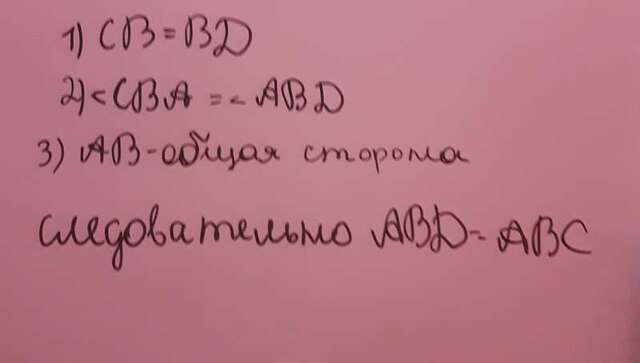 1) CB = BD
2) < CBA = < ABD
3) AB - общая сторона
следовательно ABD = ABC